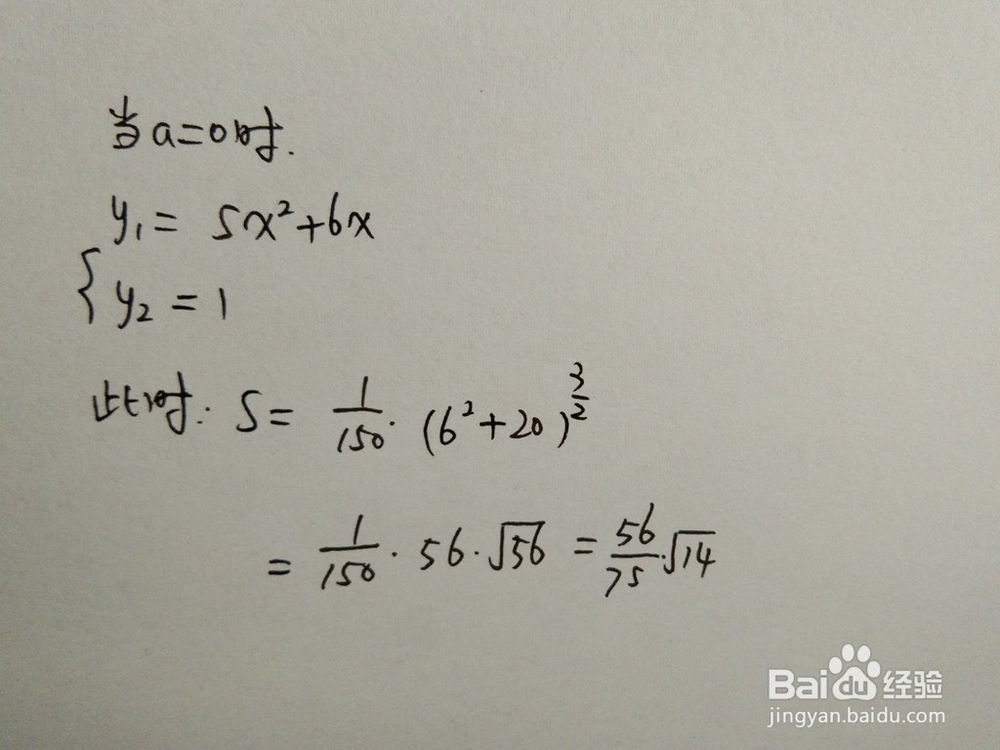 当a=0时.
y₁= 5x²+6x
{ y₂ = 1
此时: S= 1/150 · (6²+20)^(3/2)
= 1/150 · 56 · √56 = 56/75 · √14
Baidu经验
jingyan.baidu.com